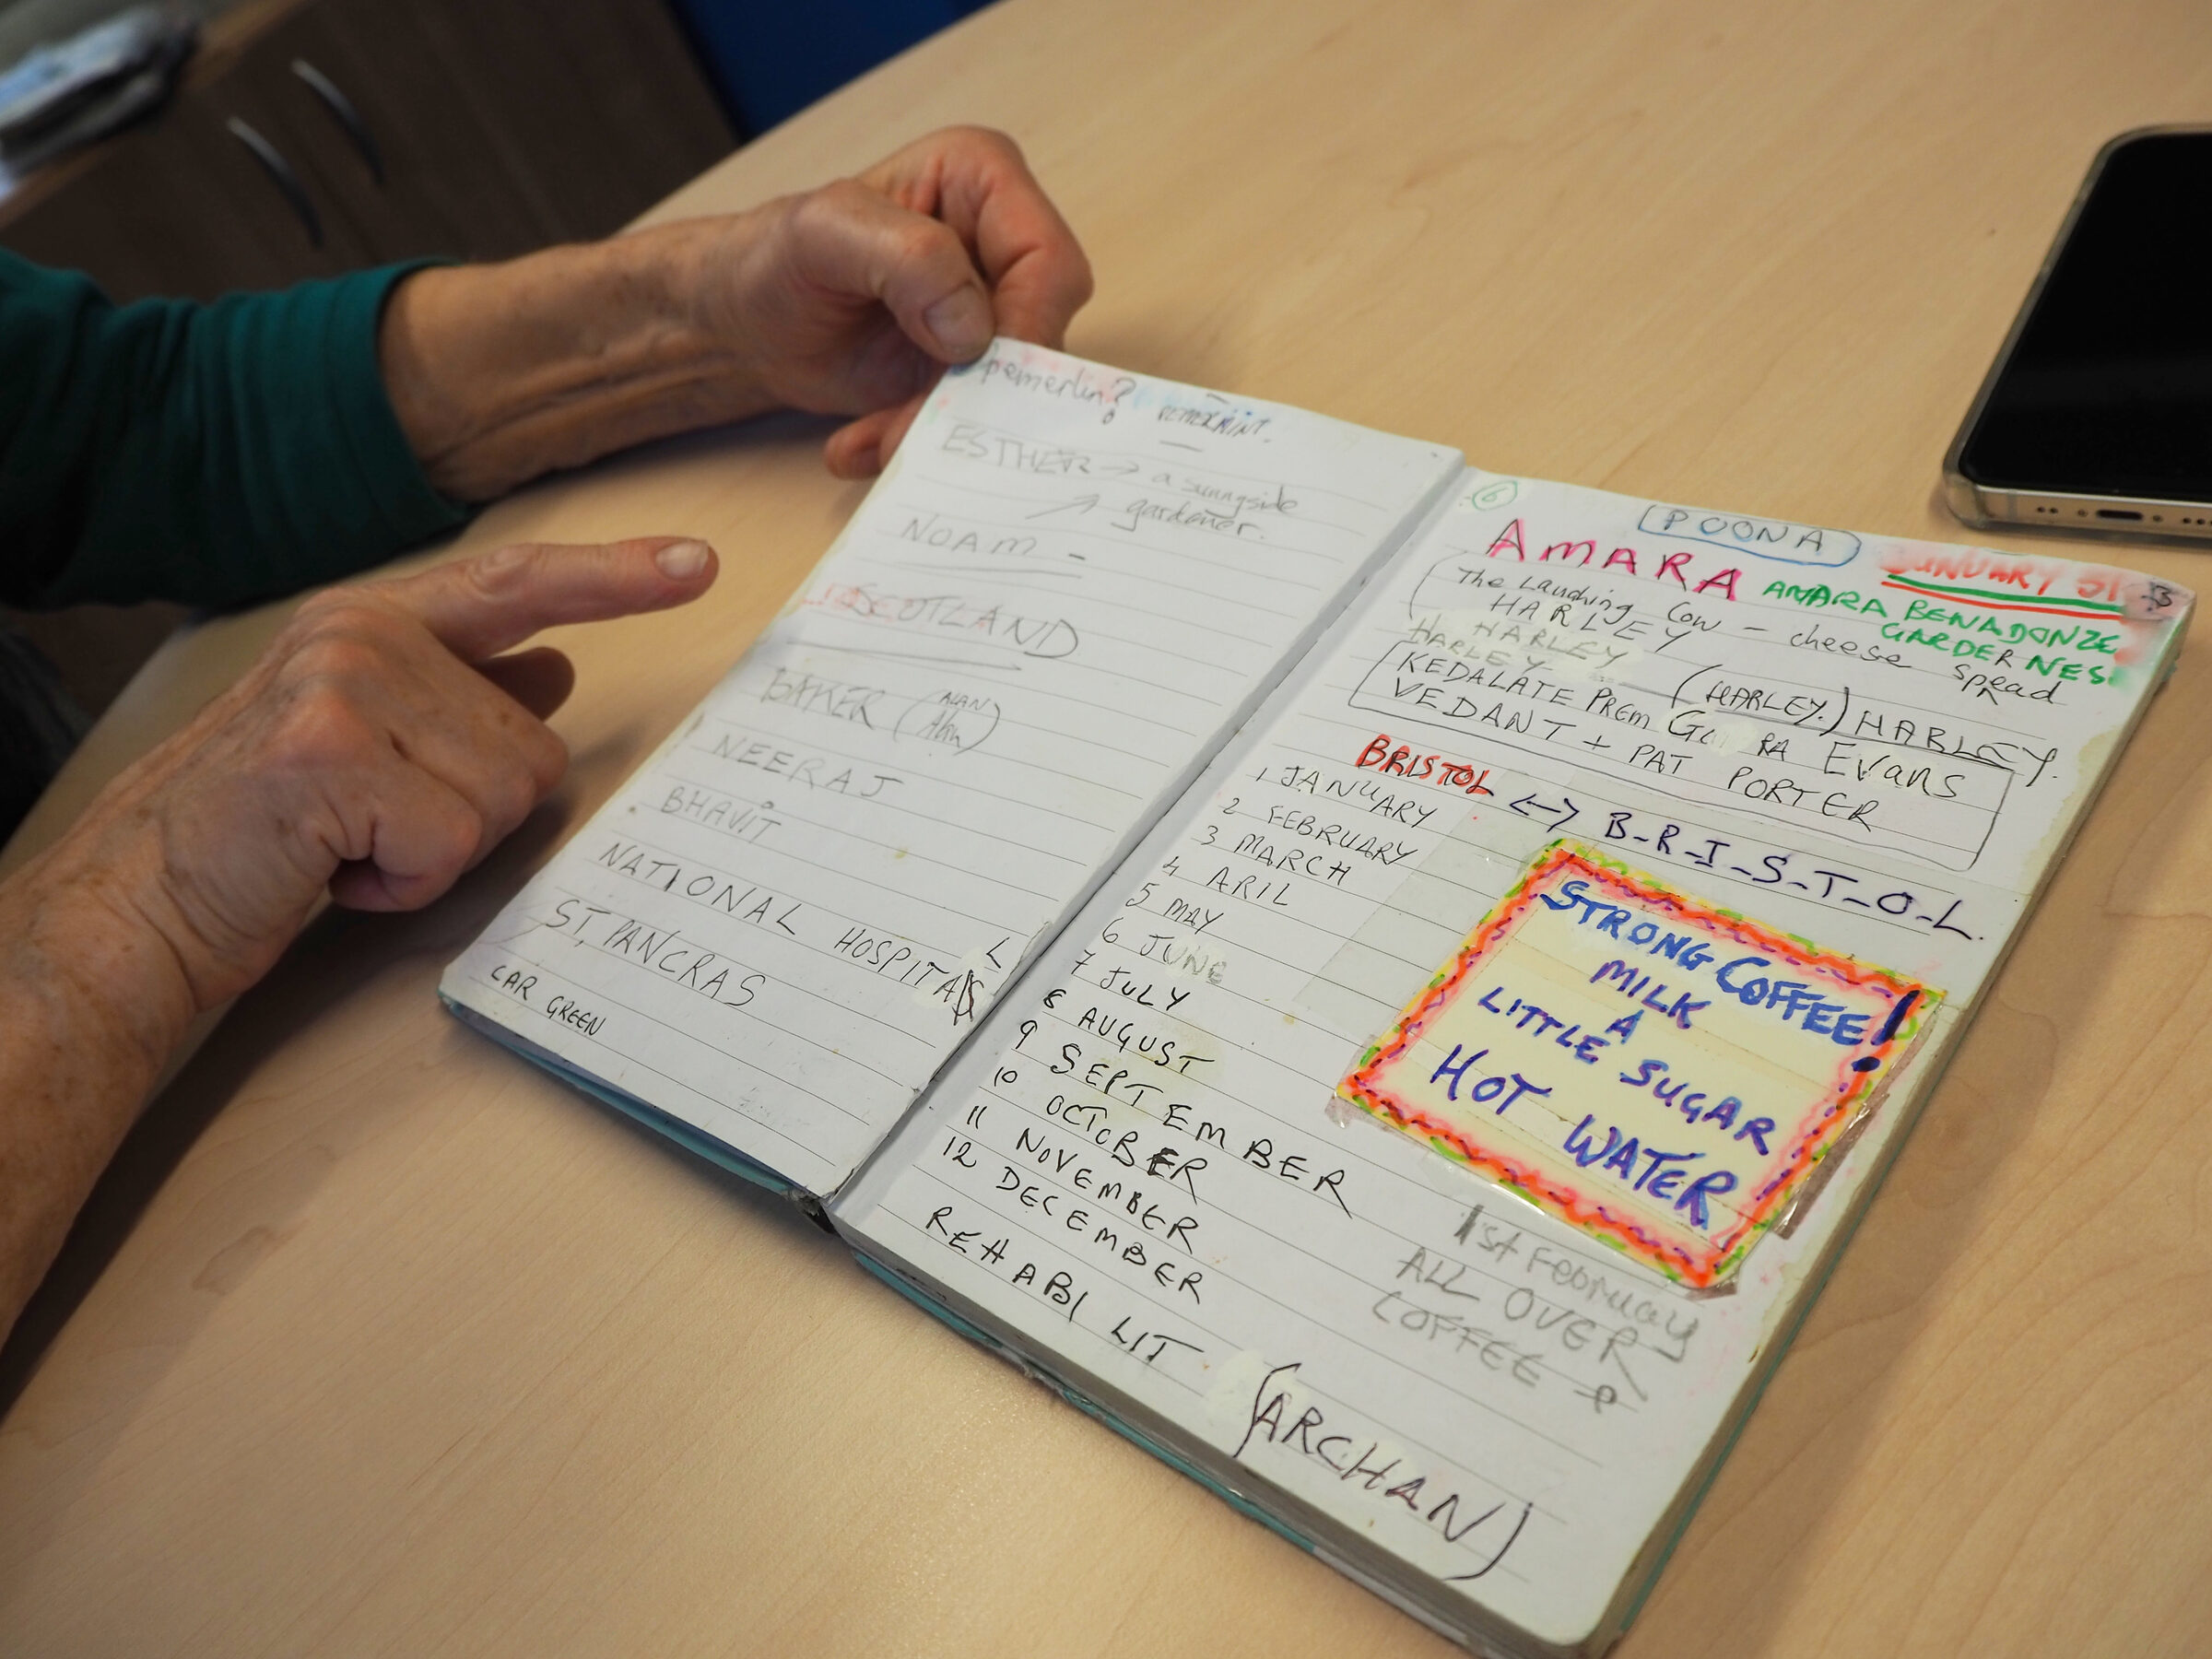 pemerlin?
PETERMINT.
ESTHER → a sunnyside
gardener.
NOAM -
SCOTLAND
BAKER (ALAN
Alan)
NEERAJ
BHAVIT
NATIONAL HOSPITAL
ST. PANCRAS
CAR GREEN
6
POONA
JANUARY 31
AMARA
AMARA BENADONZE
GARDERNES
The Laughing Cow - cheese spread
HARLEY
HARLEY
HARLEY (HARLEY.) HARLEY.
KEDALATE PREM RA Evans
VEDANT + PAT PORTER
BRISTOL <-> B-R-I-S-T-O-L.
1 JANUARY
2 FEBRUARY
3 MARCH
4 ARIL
5 MAY
6 JUNE
7 JULY
8 AUGUST
9 SEPTEMBER
10 OCTOBER
11 NOVEMBER
12 DECEMBER
REHABI LIT
STRONG COFFEE!
MILK
A
LITTLE SUGAR
HOT WATER
1st February
ALL OVER
COFFEE
(ARCHAN)